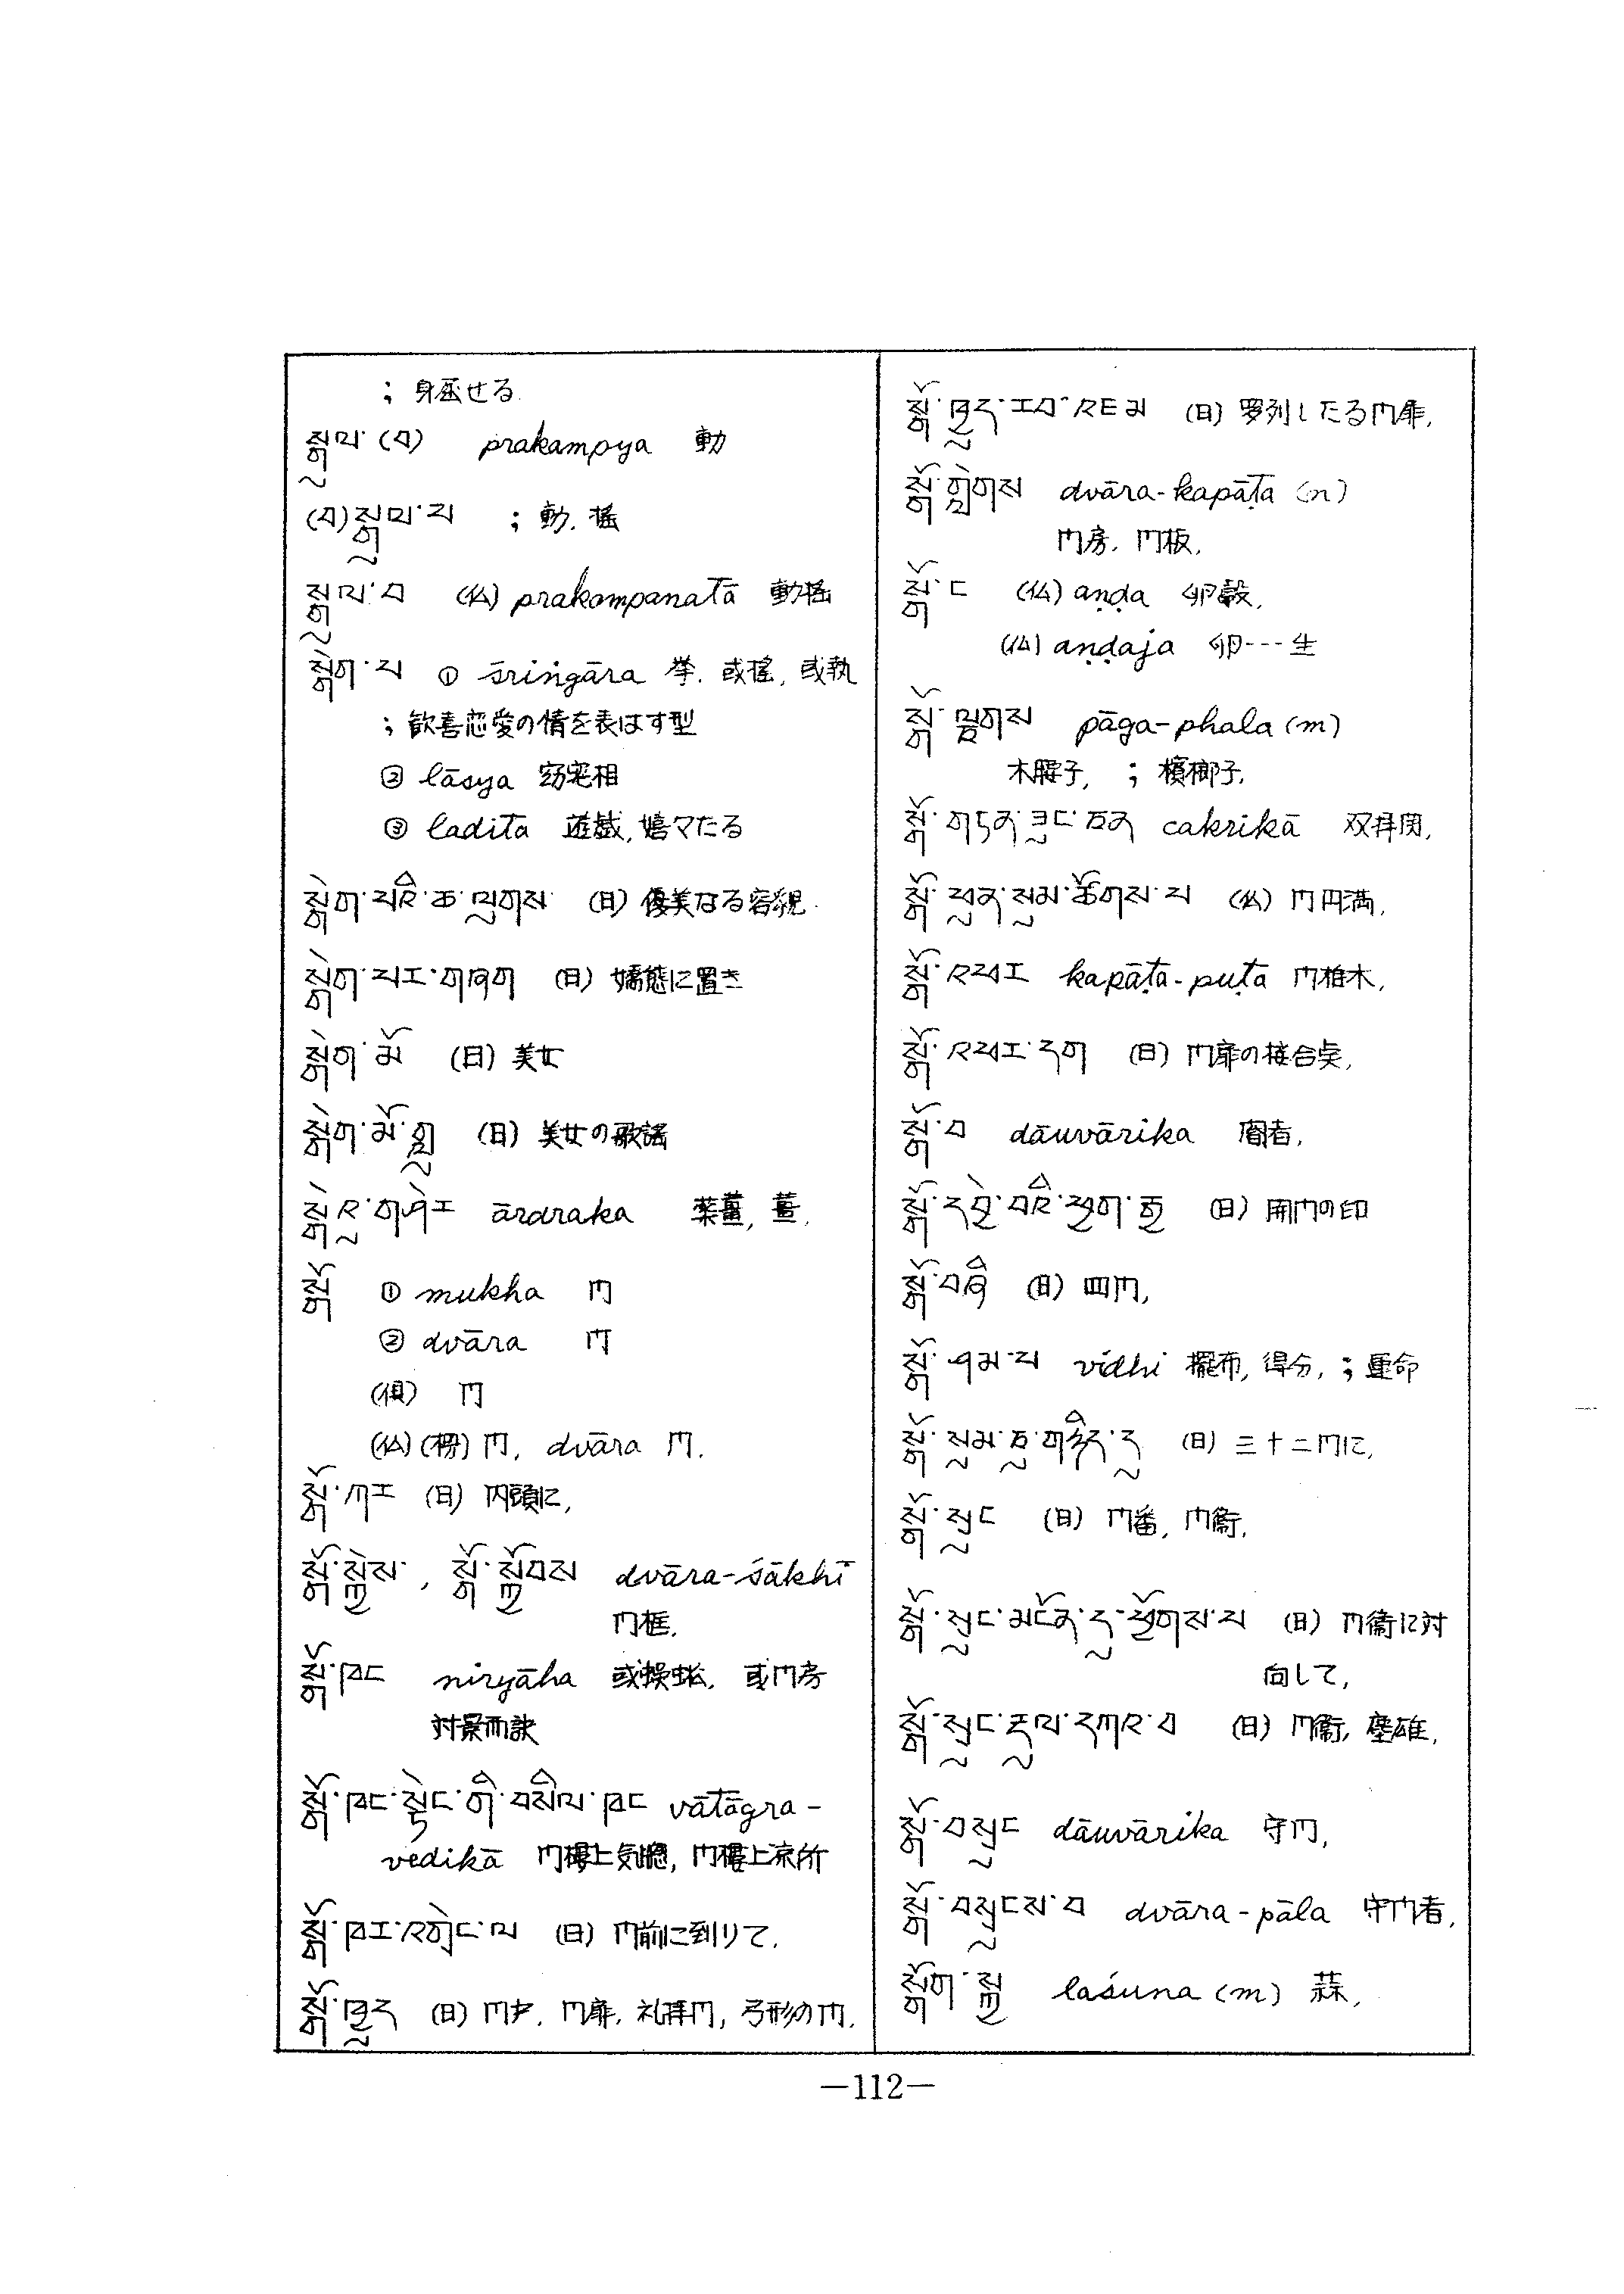 ; 身屈せる
སྒུལ་(བ) prakampya 動
(བ)སྒུལ་པ ; 動. 揺
སྒུལ་བ (仏) prakampanatā 動揺
སྒེག་པ ① śriṅgāra 挙. 或揺, 或執
; 歓喜恋愛の情を表はす型
② lāsya 窈窕相
③ ladita 遊戯, 嬉々たる
སྒེག་པའི་ཆ་ལུགས (日) 優美なる容貌
སྒེག་པར་གཞག (日) 嬌態に置き
སྒེག་མོ (日) 美女
སྒེག་མོ་གླུ (日) 美女の歌謡
སྒེའུ་གཤེར ārdraka 薬薑, 薑.
སྒོ ① mukha 門
② dvāra 門
(倶) 門
(仏) (楞) 門, dvāra 門.
སྒོ་ཀར (日) 内頭に,
སྒོ་སྐྱེས་, སྒོ་སྐྱོབས dvāra-śākhī
門框.
སྒོ་ཁང niryāha 或 或門房
対景而説
སྒོ་ཁང་སྟེང་གི་བསིལ་ཁང vātāgra-
vedikā 門樓上気樓, 門樓上涼所
སྒོ་ཁར་འགྲེང་ལ (日) 門前に到りて.
སྒོ་ཁྱུད (日) 門戸. 門扉. 礼拝門, 弓形の門.
སྒོ་ཁྱུད་རབ་འངམ (日) 羅列したる門扉.
སྒོ་གླེགས dvāra-kapāṭa (n)
門房. 門板.
སྒོ་ང (仏) aṇḍa 卵殻.
(仏) aṇḍaja 卵---生
སྒོ་ལྔགས pāga-phala (m)
木腰子, ; 檳榔子.
སྒོ་གཏན་ཟུང་ཅན cakrikā 双拝関,
སྒོ་ཕུན་སུམ་ཚོགས་པ (仏) 門円満,
སྒོ་འཕར kapāṭa-puṭa 門椎木,
སྒོ་འཕར་དག (日) 門扉の接合点,
སྒོ་བ dāuvārika 閽者,
སྒོ་དབྱེ་བའི་ཕྱག་རྒྱ (日) 開門の印
སྒོ་བཞི (日) 四門,
སྒོ་ཤམ་པ vidhi 擺布, 得分, ; 運命
སྒོ་སུམ་ཅུ་གཉིས་དུ (日) 三十二門に,
སྒོ་སྲུང (日) 門番, 門衛,
སྒོ་སྲུང་མངོན་དུ་ཕྱོགས་པ (日) 門衛に対
向して,
སྒོ་སྲུང་རྡུལ་དཀར་བ (日) 門衛, 塵雄,
སྒོ་བསྲུང dāuvārika 守門,
སྒོ་བསྲུངས་བ dvāra-pāla 守門者,
སྒོག་སྐྱ laśuna (m) 蒜,
—112—